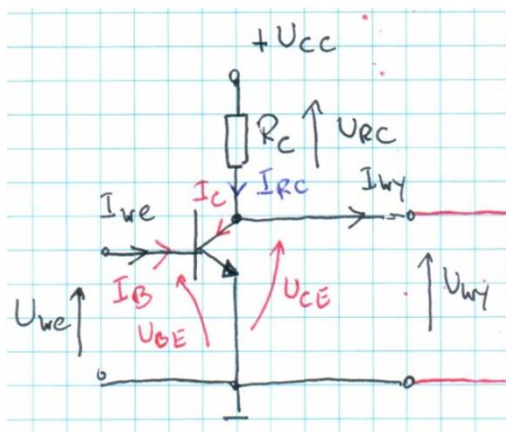 +UCC
RC
URC
IRC
IC
Iwy
Iwe
IB
UBE
UCE
Uwe
Uwy